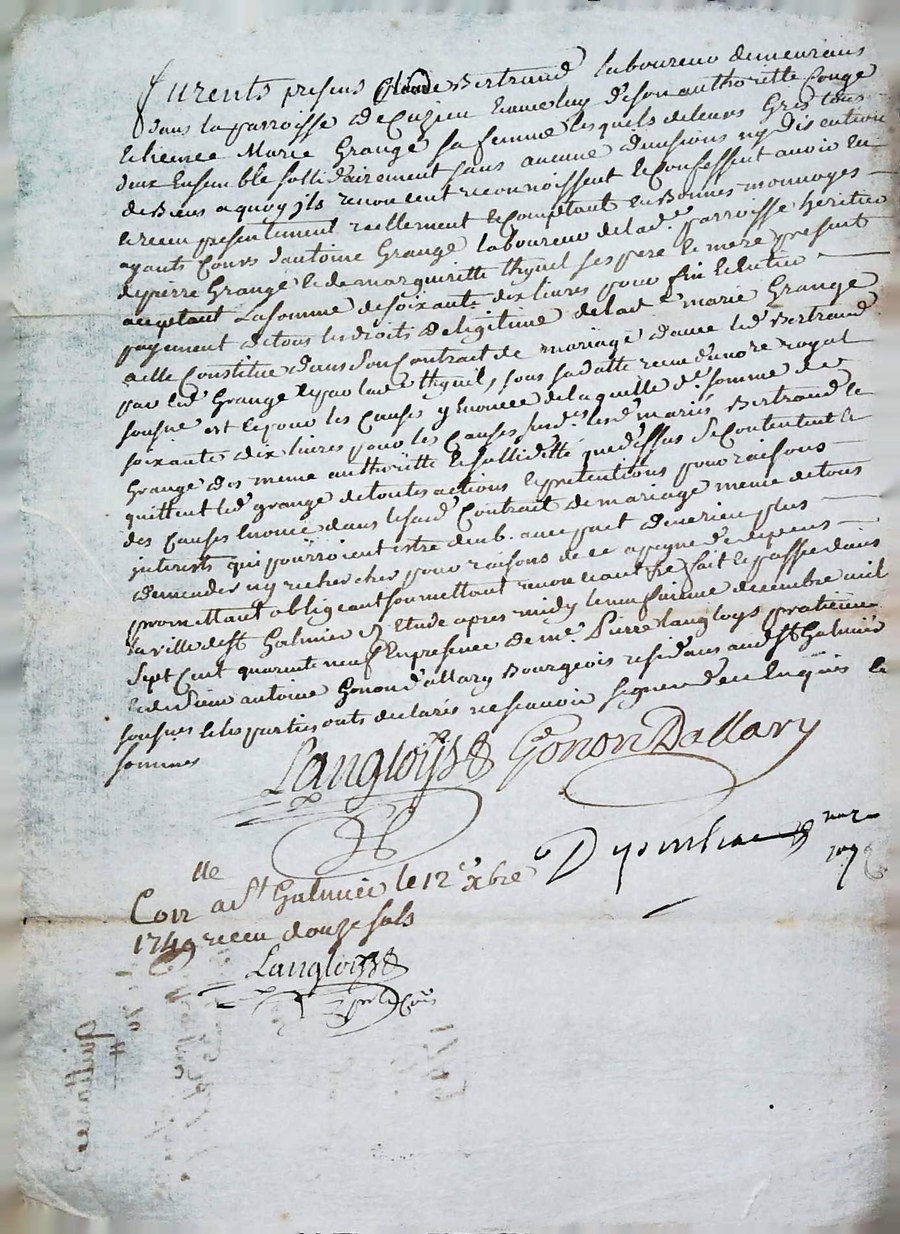 furents presens Claude Bertrand laboureur demeurans
dans la parroisse de Cuzieu & avec luy & de son authoritté Congé
& licence Marie Grange sa femme lesquels de leurs Grés tous
deux Ensemble sollidairement sans aucune divisions ny discution
de Biens a quoy ils renoncent reconnoissent & Confessent avoir eu
& receu presentement reellement & Comptant en Bonnes monnoyes
ayants Cours d'antoine Grange laboureur de lad. parroisse héritier
de pierre Grange & de marguiritte thyuel ses pere & mere present
acceptant La somme de soixante dix livres pour fin & Entier
payement de tous les droits de légitime de lad. e marie Grange
a elle Constitué dans son Contrat de mariage d'avec led. Bertrand
par led. Grange & par lad. thyuel, sous sa datte receu du nore royal
sousné est & pour les Causes y Enoncée de laquelle de. somme de
soixante dix livres pour les Causes susd. lesd. mariés Bertrand &
Grange des meme authoritté & sollidité que dessus se Contentent &
quittent led. grange de toutes actions & prétentions pour raisons
des Causes Enoncé dans lesusd. Contrat de mariage meme de tous
interists qui pourroient estre deub. avec pact de ne rien plus
demander ny rechercher pour raisons de ce a peyne de depens
promettant obligeant soumettant renoncant &c fait & passé dans
la ville de St Galmier Etude apres midy le neufvieme decembre mil
Sept Cent quarente neuf En presence de me Pierre Langloys praticien
& de sieur antoine Gonon d'allary Bourgeois residans aud. St Galmier
sousnes & les parties onts declarés ne scavoir signer de ce Enquis &
sommés
Langloys Gonon Dallary
Con a St Galmier le 12e xbre
1749 receu douze sols
Langloys